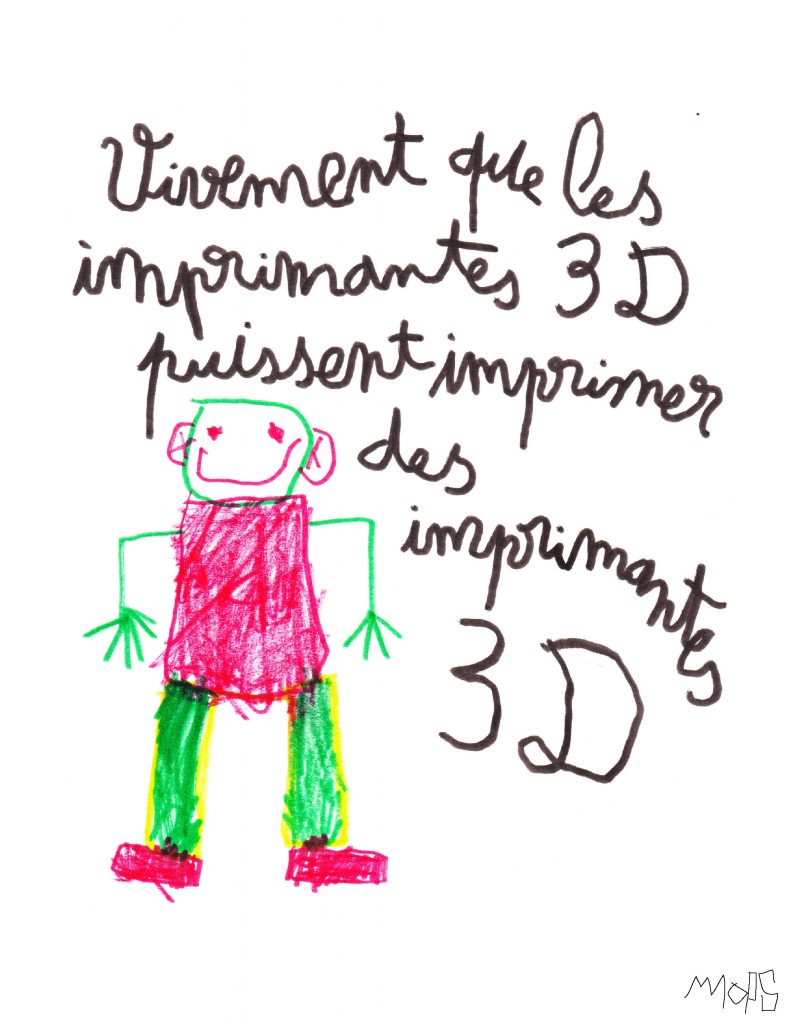 Vivement que les
imprimantes 3D
puissent imprimer
des
imprimantes
3D
MOPS